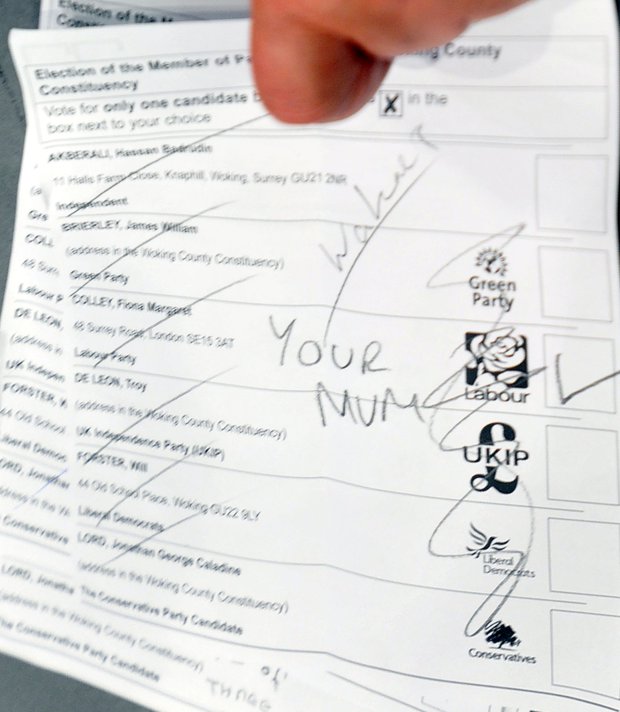 Election of the M
Election of the Member of Pa king County
Constituency
Vote for only one candidate b X in the
box next to your choice
AKBERALI, Hassan Badrudin
11 Halls Farm Close, Knaphill, Woking, Surrey GU21 2NR
Independent
BRIERLEY, James William
(address in the Woking County Constituency)
Green Party
Green
Party
COLLEY, Fiona Margaret
48 Surrey Road, London SE15 3AT
Labour Party
Labour
YOUR
MUM
DE LEON, Troy
(address in the Woking County Constituency)
UK Independence Party (UKIP)
UKIP
FORSTER, Will
44 Old School Place, Woking GU22 9LY
Liberal Democrats
Liberal
Democrats
LORD, Jonathan George Caladine
(address in the Woking County Constituency)
The Conservative Party Candidate
Conservatives
LORD, Jonatha
(address in the Woking County Constituency)
The Conservative Party Candidate